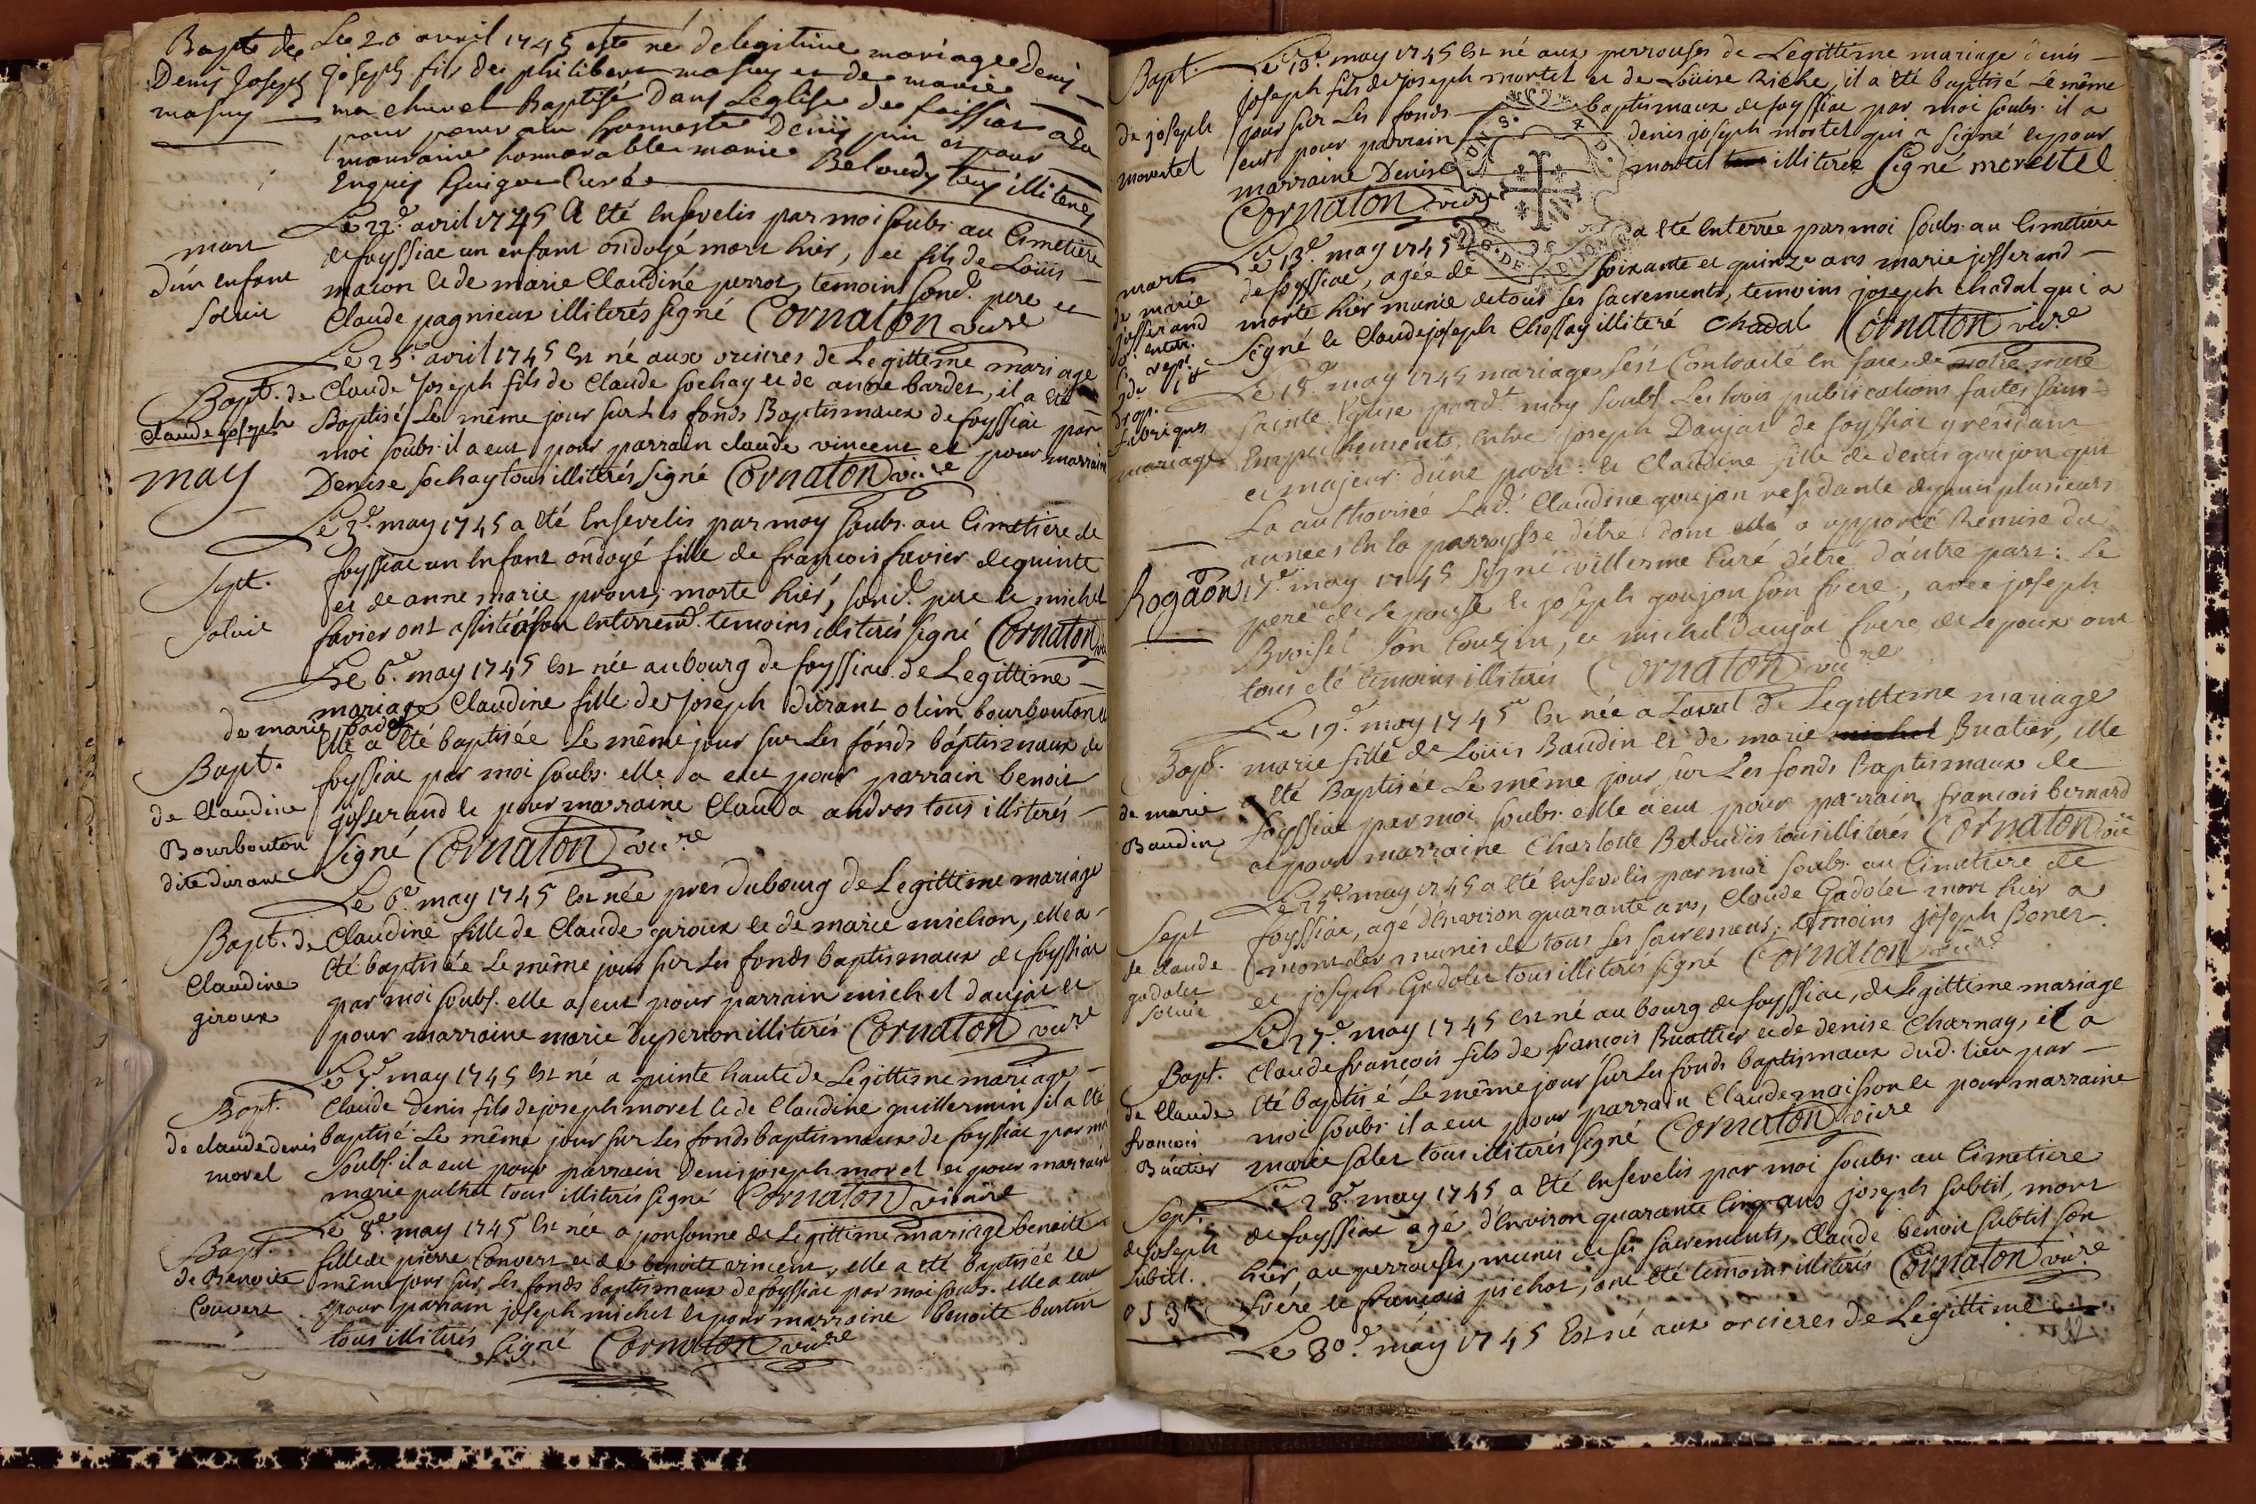 Bapt de
Denis Joseph
masuy
Le 20 avril 1745 este né de legitime mariage Denis
Joseph fils de philibert masuy et de marie
ma chevel Baptisé Dans Leglise de foissiat a eu
pour parain honneste Denis et pour
marraine honnorable marie Beloudy tous illiterez
Enquis Guigou Curé
mort
d'un enfant
soluit
Le 22e avril 1745 A eté Ensevelis par moi soubs. au Cimetiere
de foyssiac un enfant ondoyé mort hier, et fils de Loüis
macon et de marie Claudine perrot, temoins sond. pere et
Claude pagnieux illiterés signé Cornaton vicre
Bapt. de
Claude joseph
Le 25e avril 1745 Est né aux orcieres de Legittime mariage
Claude Joseph fils de Claude sochay et de anne bardet, il a eté
Baptisé Le même jour sur Les fonds Baptismaux de foyssiac par
moi soubs. il a eut pour parrain claude vincent et pour marraine
Denise sochay tous illiterés signé Cornaton vicre
may
Sept.
soluit
Le 3e may 1745 a eté Ensevelis par moy soubs. au Cimetiere de
foyssiac un Enfant ondoyé fille de françois favier de quinte
et de anne marie prout, morte hier, sond. pere et michel
favier ont assisté a son Enterremt. temoins illiterés signé Cornaton
Le 6e may 1745 Est née au bourg de foyssiac de Legittime
mariage Claudine fille de Joseph Durant olim bourbouton et
de marie
Elle a eté baptisée Le même jour sur Les fonds baptismaux de
Bapt.
de Claudine
Bourbouton
dite durant
foyssiac par moi soubs. elle a eut pour parrain benoit
josserand et pour marraine Clauda andros tous illiterés
signé Cornaton vicre
Bapt. de
Claudine
giroux
Le 6e may 1745 Est née pres du bourg de Legittime mariage
Claudine fille de Claude giroux et de marie michon, elle a
eté baptisée Le même jour sur Les fonds baptismaux de foyssiac
par moi soubs. elle a eut pour parrain michel daujat et
pour marraine marie duperron illiterés Cornaton vicre
Bapt.
de claude denis
morel
Le 7e may 1745 Est né a quinte haute de Legittime mariage
Claude denis fils de joseph morel et de Claudine guillermin il a eté
baptisé Le même jour sur Les fonds baptismaux de foyssiac par moi
soubs. il a eut pour parrain Denis joseph morel et pour marraine
marie puthet tous illiterés signé Cornaton vicaire
Bapt.
de Benoite
Convert
Le 8e may 1745 Est née a ponsonne de Legittime mariage benoite
fille de pierre Convert et de benoite vincent, elle a eté baptisée le
même jour sur Les fonds baptismaux de foyssiac par moi soubs. elle a eut
pour parrain joseph michel et pour marraine benoite burtin
tous illiterés signé Cornaton vicre
Bapt.
de joseph
morestel
Le 13e may 1745 Est né aux perrouses de Legittime mariage denis
joseph fils de joseph mortel et de Loüise Riche, il a eté baptisé Le même
jour sur Les fonds baptismaux de foyssiac par moi soubs. il a
eut pour parrain denis joseph mortel qui a signé et pour
marraine Denise mortel illiteree signé morestel
Cornaton vicre
mort
de marie
josserand
Le 13e may 1745 a eté Enterrée par moi soubs. au Cimetiere
de foyssiac, agée de soixante et quinze ans marie josserand
morte hier munie de tous ses sacrements, temoins joseph chadal qui a
signé et Claude joseph Chossay illiteré chadal Cornaton vicre
mariage
Le 18e may 1745 mariage s'est Contracté en face de notre mere
sainte Eglise pard. moy soubs. Les trois publications faites sans
Empechements, entre joseph Daujat de foyssiac y residant
et majeur d'une part: et Claudine fille de denis goujon qui
La authorisée Lad. Claudine goujon residante depuis plusieurs
années En la parroysse d'étré dont elle a apporté Remise du
Rogaõn
17e may 1745 signé villerme Curé d'étré d'autre part: Le
pere de Lepouse et joseph goujon son frere, avec joseph
Broisel son Couzin, et michel daujat frere de Lepoux ont
tous eté temoins illiterés Cornaton vicre
Bapt.
de marie
Baudin
Le 19e may 1745 Est née a Laval de Legittime mariage
marie fille de Loüis Baudin et de marie Buatier, elle
a eté Baptisée Le même jour sur Les fonds baptismaux de
foyssiac par moi soubs. elle a eut pour parrain francois bernard
et pour marraine Charlotte Beloudis tous illiterés Cornaton vic
Sept
de claude
gadolet
soluit
Le 25e may 1745 a eté Ensevelis par moi soubs. au Cimetiere de
foyssiac, agé d'Environ quarante ans, Claude Gadolet mort hier a
montder munis de tous ses sacremens, temoins joseph Bonet
et joseph Gadolet tous illiterés signé Cornaton vicre
Bapt.
de Claude
francois
Buatier
Le 27e may 1745 Est né au bourg de foyssiac, de Legittime mariage
Claude françois fils de francois Buattier et de denise Charnay, il a
eté baptisé Le même jour sur Les fonds baptismaux dud. lieu par
moi soubs. il a eut pour parrain Claude moisson et pour marraine
marie solet tous illiterés signé Cornaton vicre
Sept.
de joseph
Subtil.
Le 28e may 1745 a eté Ensevelis par moi soubs. au Cimetiere
de foyssiac agé d'Environ quarante Cinq ans joseph subtil, mort
hier, au perrouses, munis de ses sacrements, Claude benoit subtil son
frére et françois pichot, ont eté temoins illiterés Cornaton vicre
Le 30e may 1745 Est né aux orcieres de Legittime